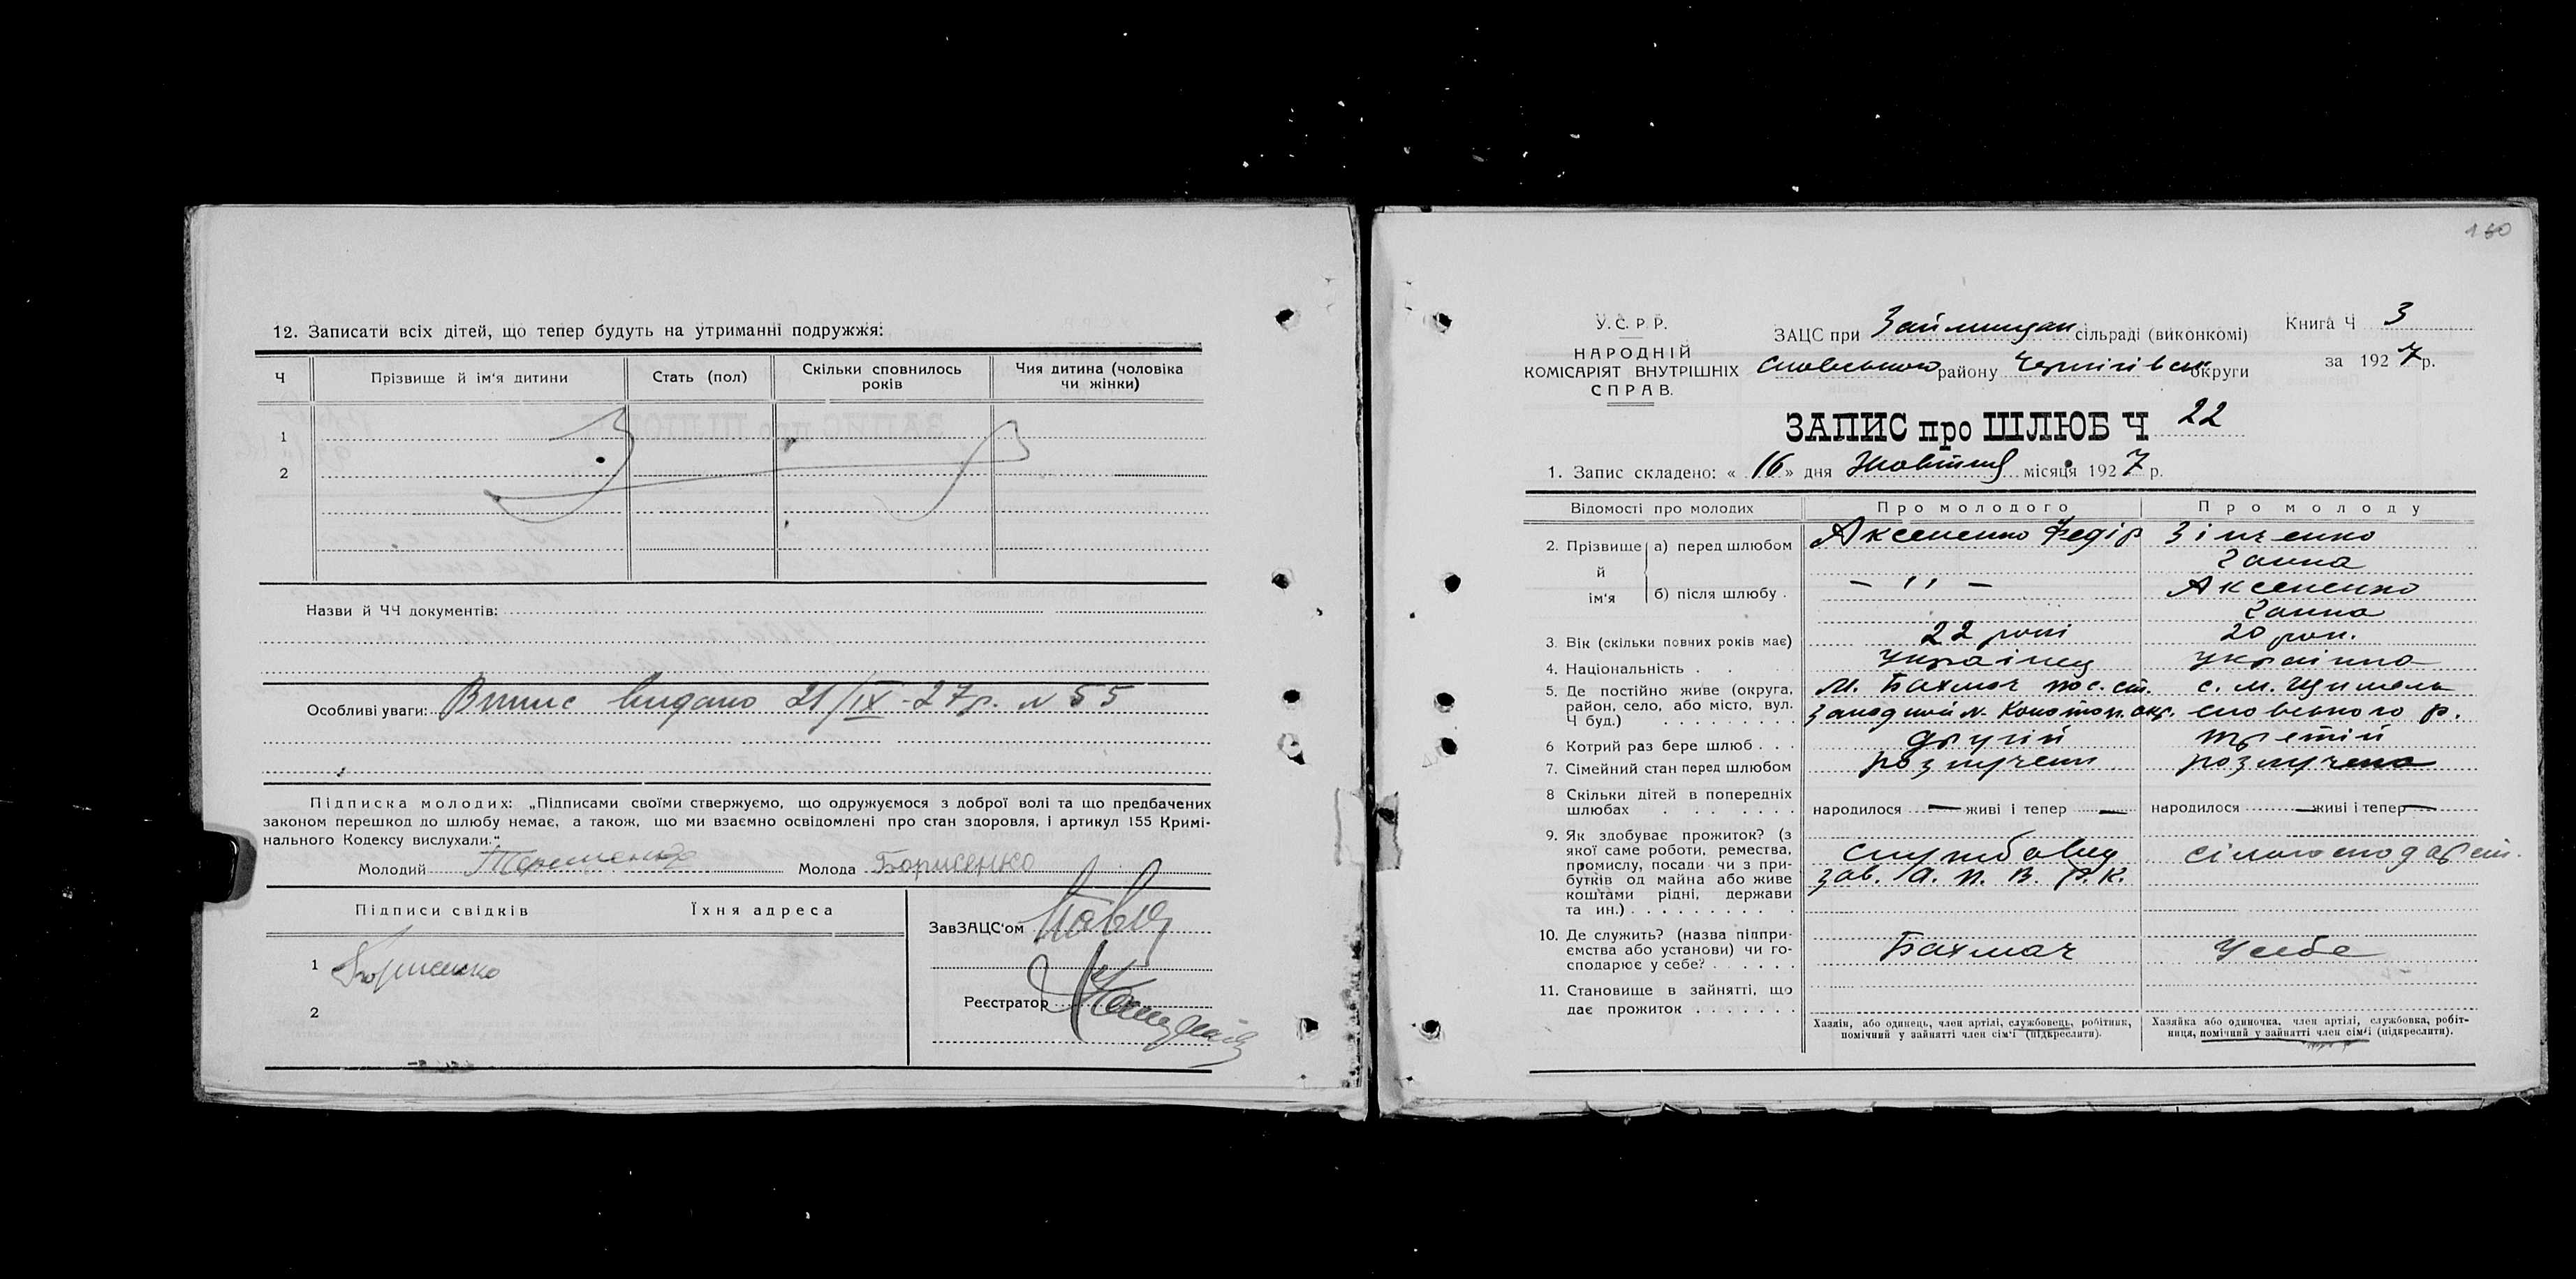 12. Записати всіх дітей, що тепер будуть на утриманні подружжя:
Ч
Прізвище й ім'я дитини
Стать (пол)
Скільки сповнилось років
Чия дитина (чоловіка чи жінки)
1
2
Назви й ЧЧ документів:
Особливі уваги: Випис видано 21/IX-27р. N 55
Підписка молодих: „Підписами своїми стверджуємо, що одружуємося з доброї волі та що предбачених
законом перешкод до шлюбу немає, а також, що ми взаємно освідомлені про стан здоровля, і артикул 155 Кримі-
нального Кодексу вислухали."
Молодий
Молода Борисенко
Підписи свідків
Їхня адреса
1 Борисенко
2
ЗавЗАЦС'ом
Реєстратор
160
У. С. Р. Р.
НАРОДНІЙ
КОМІСАРІЯТ ВНУТРІШНІХ
СПРАВ.
ЗАЦС при Займищан сільраді (виконкомі)
Сновського району Чернігівськ округи
Книга Ч 3
за 1927 р.
ЗАПИС про ШЛЮБ Ч 22
1. Запис складено: « 16 » дня Жовтня місяця 1927 р.
Відомості про молодих
Про молодого
Про молоду
2. Прізвище й ім'я
а) перед шлюбом
Аксененко Федір
Зінченко
Ганна
б) після шлюбу
— " —
Аксененко
Ганна
3. Вік (скільки повних років має)
22 рокі
20 рок.
4. Національність
Українец
Українка
5. Де постійно живе (округа,
район, село, або місто, вул.
Ч буд.)
М. Бахмач пос. ст.
Конотоп. окр.
с. м. Щимель
Сновського р.
6 Котрий раз бере шлюб
другій
третій
7. Сімейний стан перед шлюбом
розлучен
розлучена
8 Скільки дітей в попередніх
шлюбах
народилося — живі і тепер —
народилося — живі і тепер —
9. Як здобуває прожиток? (з
якої саме роботи, ремества,
промислу, посади чи з при-
бутків од майна або живе
коштами рідні, держави
та ин.)
службовец
зав. А. П. В. Р. К.
сільгосподарст.
10. Де служить? (назва підпри-
ємства або установи) чи го-
сподарює у себе?
Бахмач
У себе
11. Становище в зайнятті, що
дає прожиток
Хазяїн, або одинець, член артілі, службовець, робітник,
помічний у зайнятті член сім'ї (підкреслити).
Хазяйка або одиночка, член артілі, службовка, робіт-
ниця, помічний у зайнятті член сім'ї (підкреслити).